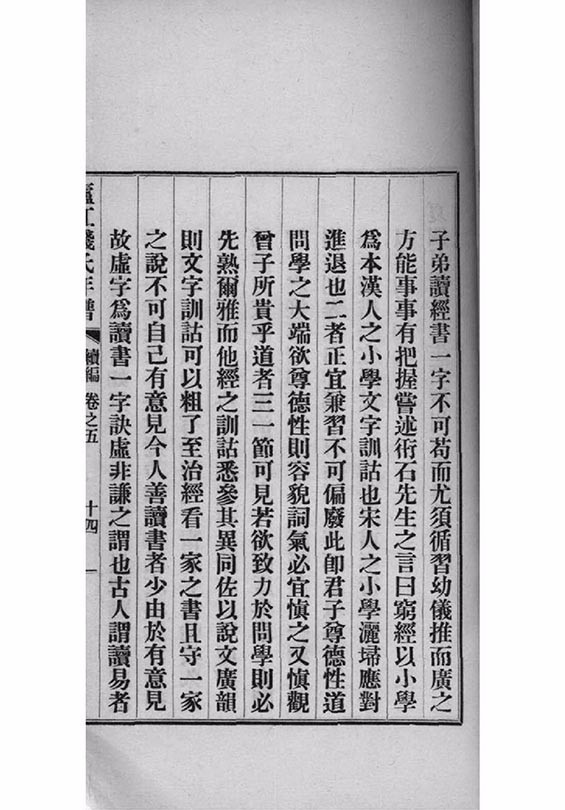 子弟讀經書一字不可苟而尤須循習幼儀推而廣之
方能事事有把握嘗述術石先生之言曰窮經以小學
爲本漢人之小學文字訓詁也宋人之小學灑埽應對
進退也二者正宜兼習不可偏廢此卽君子尊德性道
問學之大端欲尊德性則容貌詞氣必宜慎之又慎觀
曾子所貴乎道者三一節可見若欲致力於問學則必
先熟爾雅而他經之訓詁悉參其異同佐以說文廣韻
則文字訓詁可以粗了至治經看一家之書且守一家
之說不可自己有意見今人善讀書者少由於有意見
故虛字爲讀書一字訣虛非謙之謂也古人謂讀易者
廬江錢氏年譜 續編 卷之五 十四